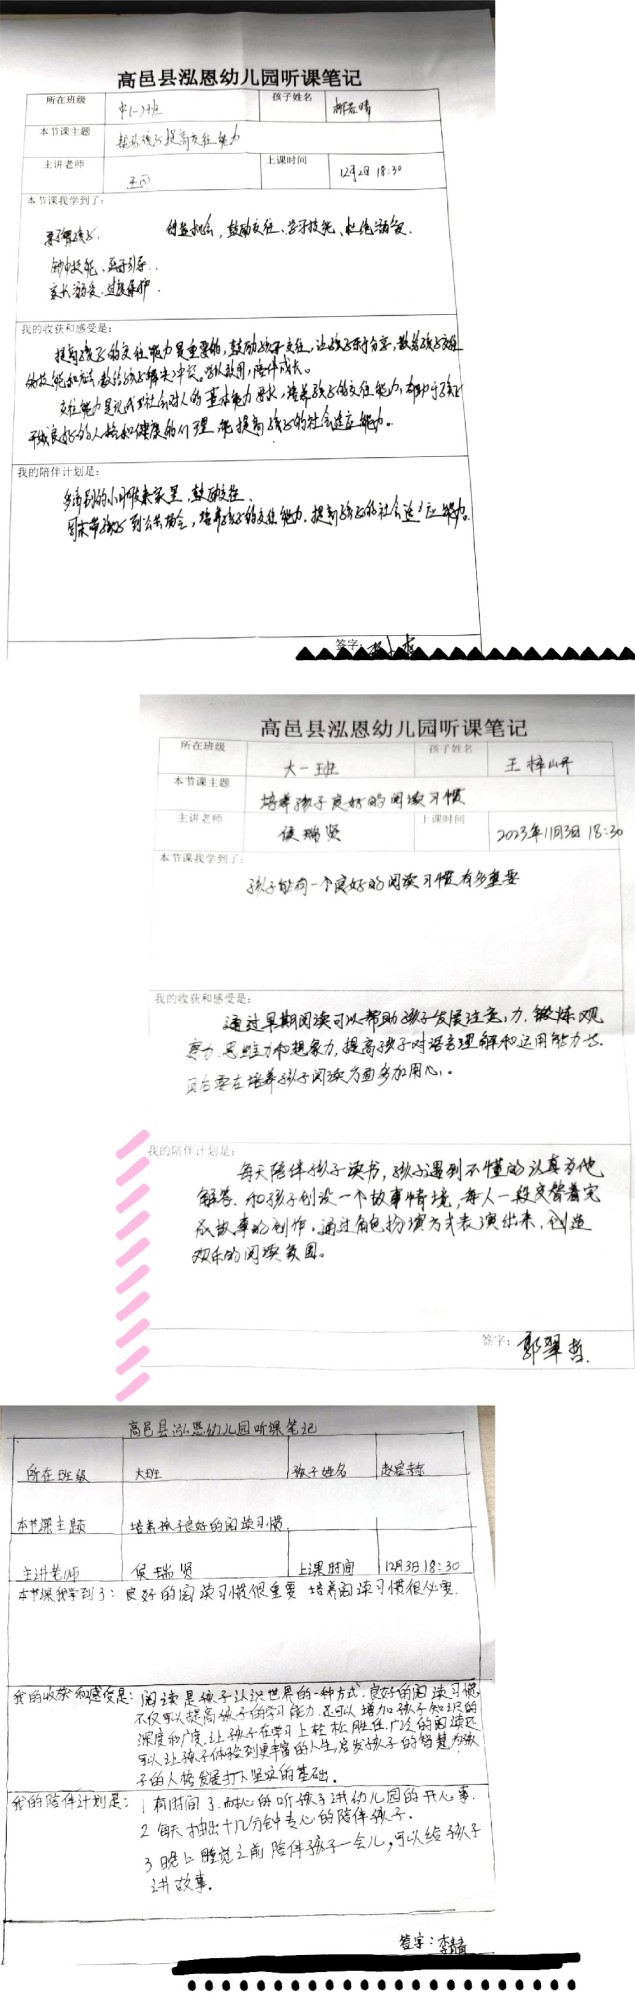 高邑县泓恩幼儿园听课笔记
所在班级 中(一)班 孩子姓名
本节课主题 帮助孩子提高交往能力
主讲老师 上课时间 12月2日 18:30
本节课我学到了:
创造机会,鼓励交往、学习技能、杜绝溺爱.
家长溺爱、过度保护.
我的收获和感受是:
提高孩子的交往能力是重要的,鼓励孩子交往,让孩子乐于分享,教给孩子交往
的技能和方法 教给孩子解决冲突。陪伴成长。
交往能力是现代社会对人的基本能力要求,培养孩子的交往能力,有助于孩子
形成良好的人格和健康的心理 能提高孩子的社会适应能力。
我的陪伴计划是:
多请别的小朋友来家里,鼓励交往.
周末带孩子到公共场合,培养孩子的交往能力.提高孩子的社会适应能力.
签字:
高邑县泓恩幼儿园听课笔记
所在班级 大一班 孩子姓名 王梓妍
本节课主题 培养孩子良好的阅读习惯
主讲老师 侯瑞贤 上课时间 2023年11月3日 18:30
本节课我学到了:
孩子能有一个良好的阅读习惯有多重要
我的收获和感受是:
通过早期阅读可以帮助孩子发展注意力.锻炼观
察力 思维力和想象力,提高孩子对语言理解和运用能力.
以后要在培养孩子阅读方面多加用心。
我的陪伴计划是:
每天陪伴孩子读书,孩子遇到不懂的认真为他
解答.和孩子创设一个故事情境,每人一段交替着完
成故事的创作.通过角色扮演方式表演出来,创造
欢乐的阅读氛围。
签字: 郭翠哲
高邑县泓恩幼儿园听课笔记
所在班级 大班 孩子姓名
本节课主题 培养孩子良好的阅读习惯.
主讲老师 侯瑞贤 上课时间 12月3日 18:30
本节课我学到了: 良好的阅读习惯很重要 培养阅读习惯很必要.
我的收获和感受是: 阅读是孩子认识世界的一种方式.良好的阅读习惯
不仅可以提高孩子的学习能力.还可以增加孩子知识的
深度和广度.让孩子在学习上轻松胜任.广泛的阅读还
可以让孩子体验到更丰富的人生,启发孩子的智慧为孩
子的人格发展打下坚实的基础.
我的陪伴计划是: 1 有时间了.耐心的听孩子讲幼儿园的开心事.
2 每天抽出十几分钟专心的陪伴孩子.
3 晚上睡觉之前陪伴孩子一会儿,可以给孩子
讲故事.
签字: 李青青